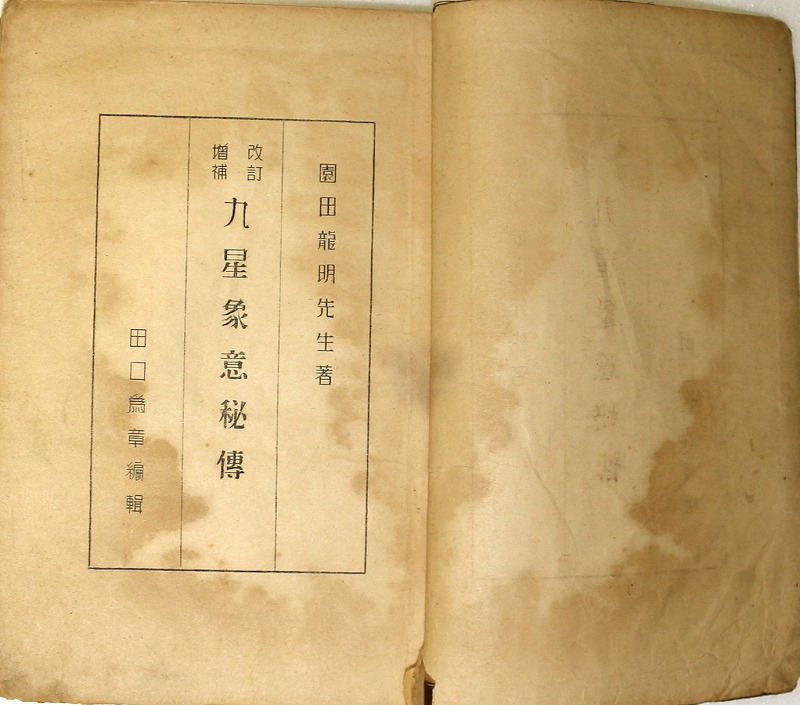 園田龍明先生著
改訂
增補
九星象意秘傳
田口爲章編輯